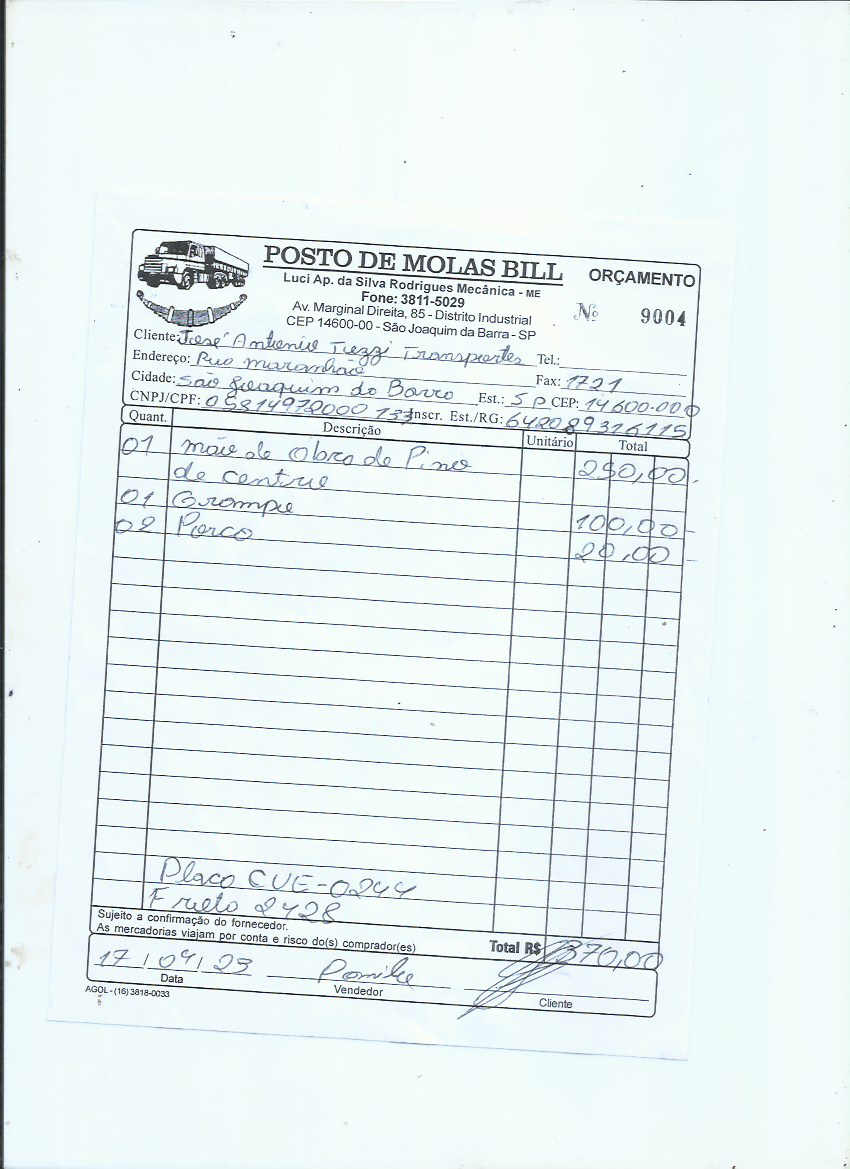 POSTO DE MOLAS BILL
ORÇAMENTO
Luci Ap. da Silva Rodrigues Mecânica - ME
Fone: 3811-5029
Nº 9004
Av. Marginal Direita, 85 - Distrito Industrial
CEP 14600-00 - São Joaquim da Barra - SP
Cliente: José Antonio Tezzi Transportes Tel.:
Endereço: Rua maranhão Fax: 1721
Cidade: São Joaquim da Barra Est.: SP CEP: 14600-000
CNPJ/CPF: Inscr. Est./RG:
Quant. Descrição Unitário Total
01 mão de Obra de Pino
de centro 250,00
01 Grampo 100,00
02 Porca 20,00
Placa CUE-0244
Frota 2428
Sujeito a confirmação do fornecedor.
As mercadorias viajam por conta e risco do(s) comprador(es) Total R$ 370,00
17/04/23
Data Vendedor Cliente
AGOL - (16) 3818-0033